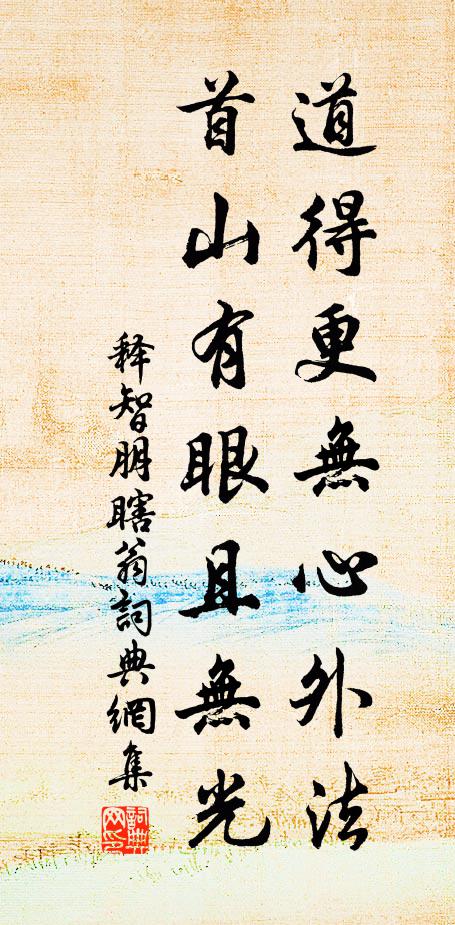 道得更無心外法
首山有眼且無光
释智朋瞎翁詞典網集
詞典网印